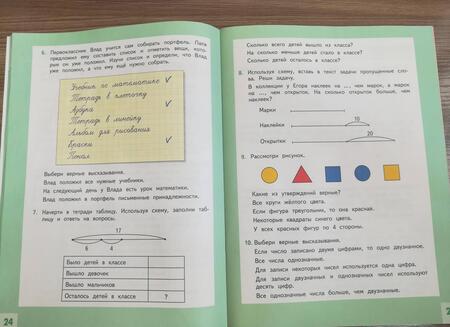 6. Первоклассник Влад учится сам собирать портфель. Папа
предложил ему составить список и отметить вещи, кото-
рые он уже положил. Изучи список и определи, что Влад
уже положил, а что ему ещё нужно собрать.
Учебник по математике ✓
Тетрадь в клеточку
Азбука ✓
Тетрадь в линейку
Альбом для рисования
Краски ✓
Пенал
Выбери верные высказывания.
Влад положил все нужные учебники.
На следующий день у Влада есть урок математики.
Влад положил в портфель письменные принадлежности.
7. Начерти в тетради таблицу. Используя схему, заполни таб-
лицу и ответь на вопросы.
17
6 4
Было детей в классе
Вышло девочек
Вышло мальчиков
Осталось детей в классе ?
24
Сколько всего детей вышло из класса?
На сколько меньше детей стало в классе?
Сколько детей осталось в классе?
8. Используя схему, вставь в текст задачи пропущенные сло-
ва. Реши задачу.
В коллекции у Егора наклеек на ..., чем марок, а марок
на ..., чем открыток. На сколько открыток больше, чем
наклеек?
Марки
10
Наклейки
20
Открытки
9. Рассмотри рисунок.
Какие из утверждений верные?
Все круги жёлтого цвета.
Если фигура треугольник, то она красная.
Некоторые квадраты синего цвета.
У всех красных фигур по 4 стороны.
10. Выбери верные высказывания.
Если число записано двумя цифрами, то оно двузначное.
Все числа однозначные.
Для записи некоторых чисел используется одна цифра.
Для записи двузначных и однозначных чисел используют
десять цифр.
Все однозначные числа больше, чем двузначные.